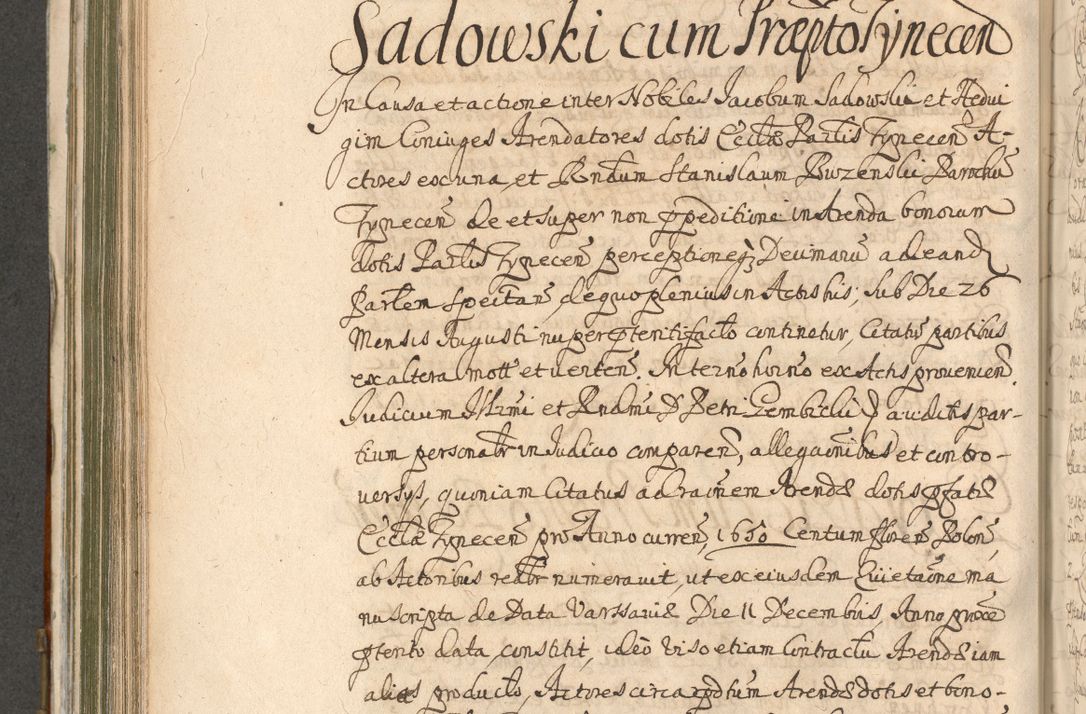 Sadowski cum Præpto Tynecen̄
In Causa et actione inter Nobiles Jacobum Sadowski et Hedui
gim Coniuges Arendatores dotis Eccl̃æ Parl̃is Tynecen̄ A-
ctores ex una, et Rndum Stanislaum Buzenski Parochū
Tynecen̄ de et super non expeditione in Arenda bonorum
dotis Parl̃is Tynecen̄ perceptioneq; Decimarū ad eand
Parlem Spectan̄, de quo plenius in Actis his, sub Die 26
Mensis Augusti nuper pteriti facto continetur, Citatū partibus
ex altera mott̃ et verten̄. In termo horno ex Actis provenien̄.
Judicium Illr̃mi et Rndmi D Petri Gembicki D auditis par-
tium personalr in Judicio comparen̄, allega​o​nibus et contro-
versys, quoniam Citatus ad ra​o​nem Arendæ dotis p̱fatæ
Eccl̃æ Tynecen̄ pro Anno curren̄, 1650 Centum floren̄ Polon̄,
ab Actoribus realr numeravit, ut ex eiusdem Quietao​ne ma
nu scripta de Data Varssaviæ Die 11 Decembris, Anno proxe
pterito data, constitit, ideo viso etiam Contractu Arendæ iam
alias producto, Actores circa p̱dtum Arendæ dotis et bono-